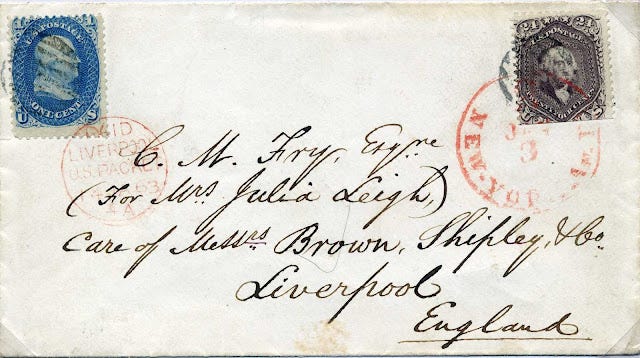 U.S. POSTAGE
ONE CENT
24 24
U.S. POSTAGE
NEW YORK
3
PAID
LIVERPOOL
U.S. PACKET
63
4A
C. M. Fry, Esqre
(For Mrs. Julia Leigh,)
Care of Messrs Brown, Shipley, & Co
Liverpool
England